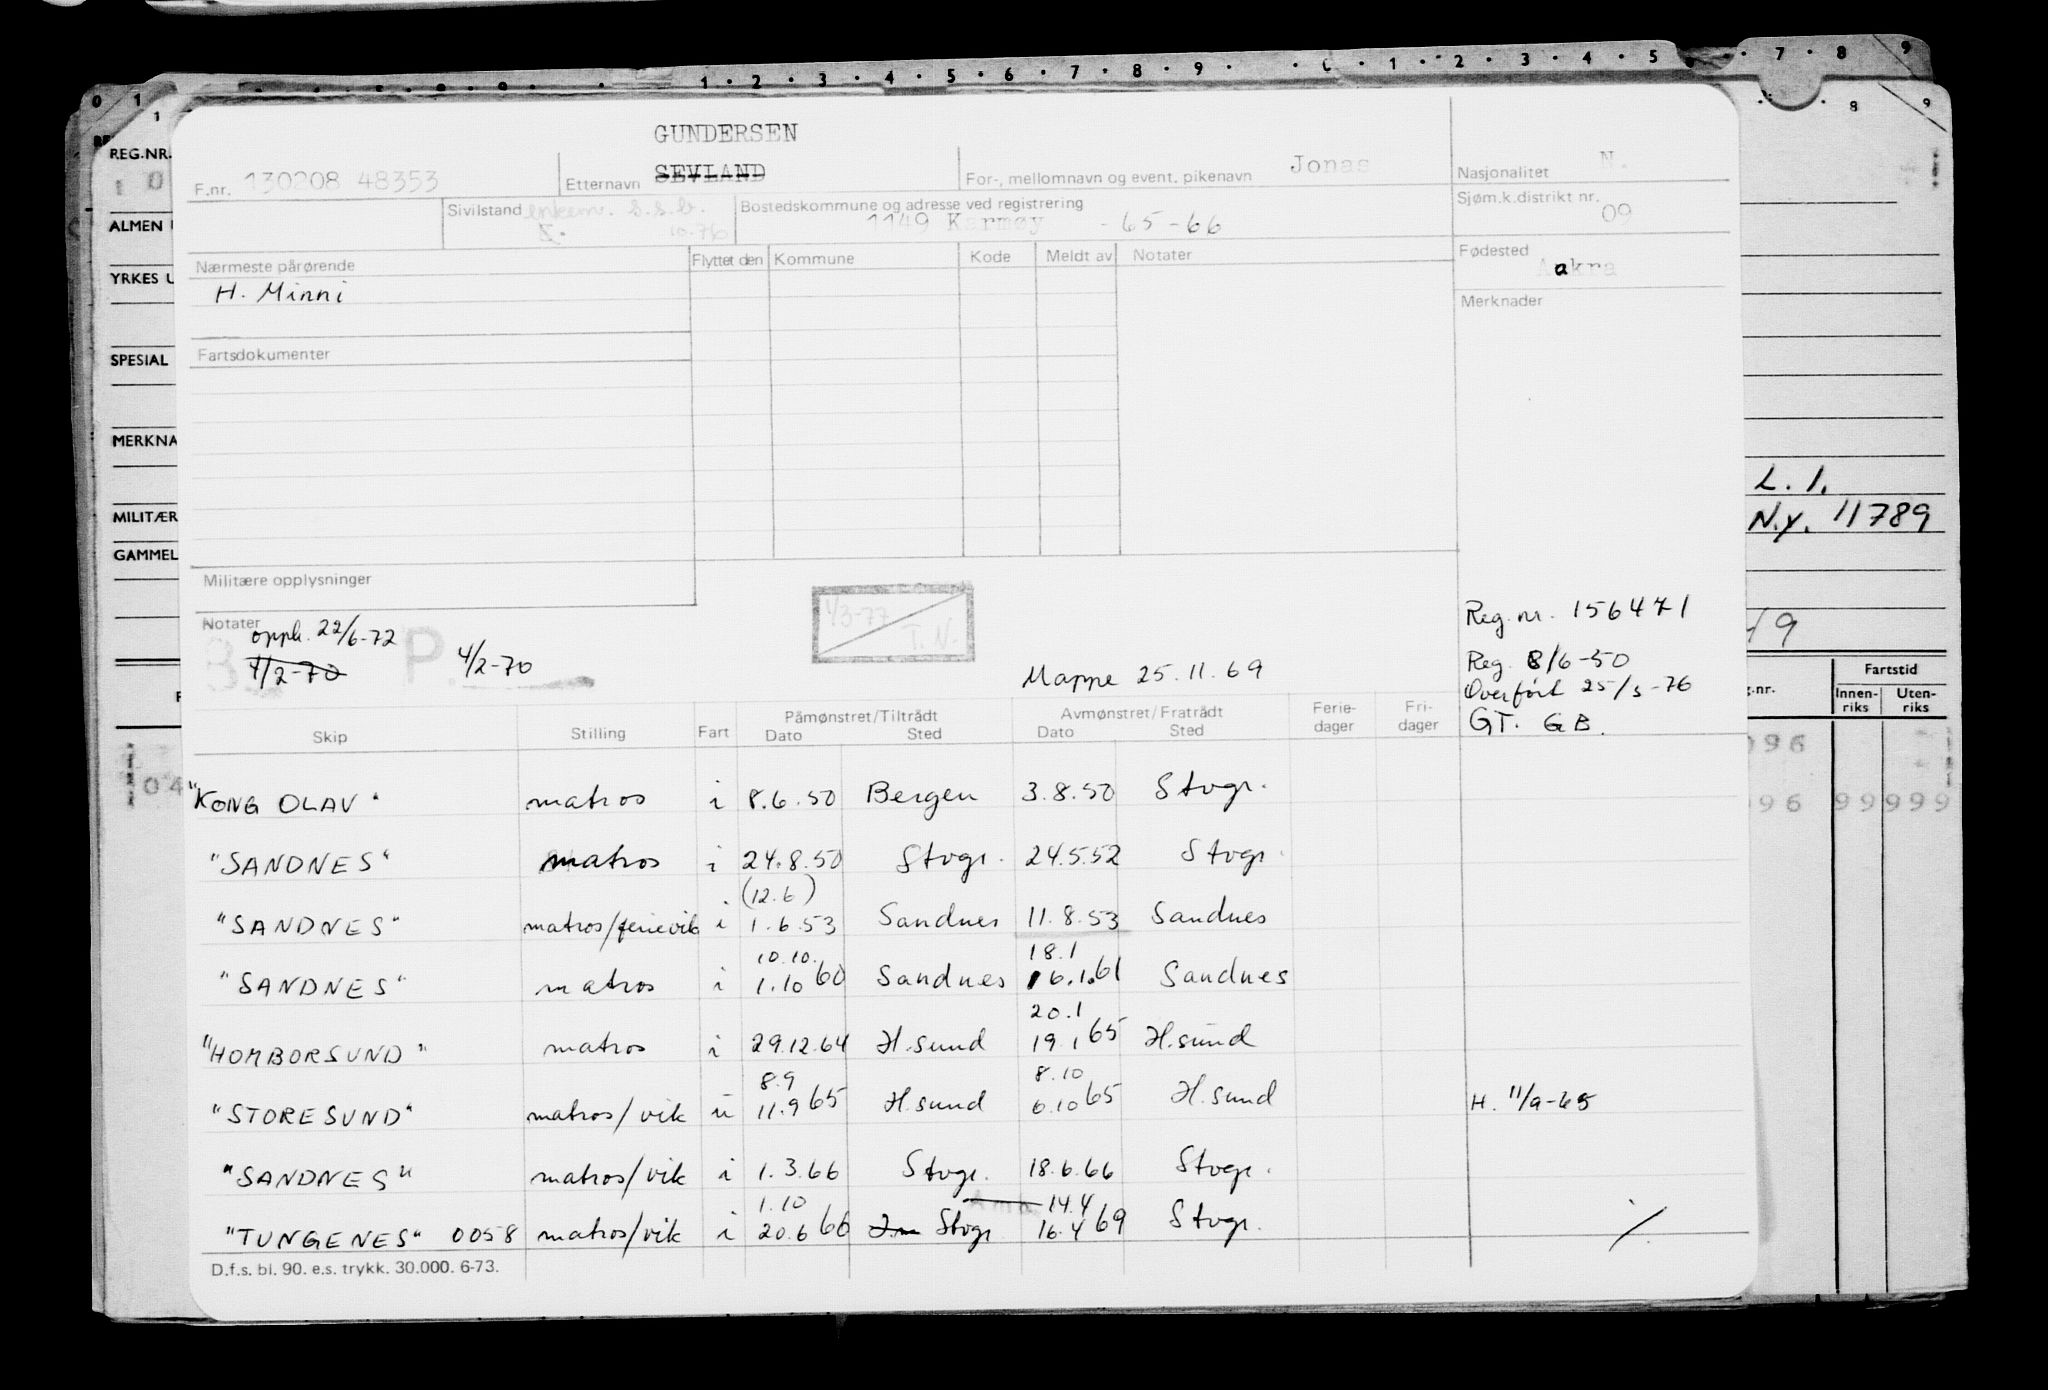 0 1 1 · 2 · 3 · 4 · 5 · 6 · 7 · 8 · 9 · 1 · 2 · 3 · 4 · 5 · 7 · 8 · 9
1 8 9
REG.NR.
ALMEN
YRKES U
SPESIAL
MERKNA
MILITÆR
GAMMEL
GUNDERSEN
F.nr. 130208 48353 Etternavn SEVLAND For-, mellomnavn og event. pikenavn Jonas Nasjonalitet N.
Sivilstand enkem. s.s.b. 10.76 Bostedskommune og adresse ved registrering 1149 Karmøy - 65-66 Sjøm.k.distrikt nr. 09
Nærmeste pårørende Flyttet den Kommune Kode Meldt av Notater Fødested Aakra
H. Minni Merknader
Fartsdokumenter
L. I.
N.Y. 11789
Militære opplysninger
Notater
opph. 22/6-72
4/2-70 P. 4/2-70
1/3-77 T. N.
Mappe 25.11.69
Reg. nr. 156471
Reg. 8/6-50
Overført 25/5-76
GT. GB.
Skip Stilling Fart Påmønstret/Tiltrådt Dato Sted Avmønstret/Fratrådt Dato Sted Ferie-dager Fri-dager
g.nr. Fartstid
Innen-riks Uten-riks
"KONG OLAV" matros i 8.6.50 Bergen 3.8.50 Stvgr.
"SANDNES" matros i 24.8.50 Stvgr. 24.5.52 Stvgr.
(12.6)
"SANDNES" matros/ferievik i 1.6.53 Sandnes 11.8.53 Sandnes
10.10. 18.1
"SANDNES" matros i 1.10 60 Sandnes 16.1.61 Sandnes
20.1
"HOMBORSUND" matros i 29.12.64 H.sund 19.1 65 H.sund
8.9 8.10
"STORESUND" matros/vik u 11.9 65 H.sund 6.10 65 H.sund H. 11/9-65
"SANDNES" matros/vik i 1.3.66 Stvgr. 18.6.66 Stvgr.
1.10 14.4
"TUNGENES" 0058 matros/vik i 20.6 66 Stvgr 16.4 69 Stvgr. ./.
D.f.s. bl. 90. e.s. trykk. 30.000. 6-73.
04
096
96 99 999